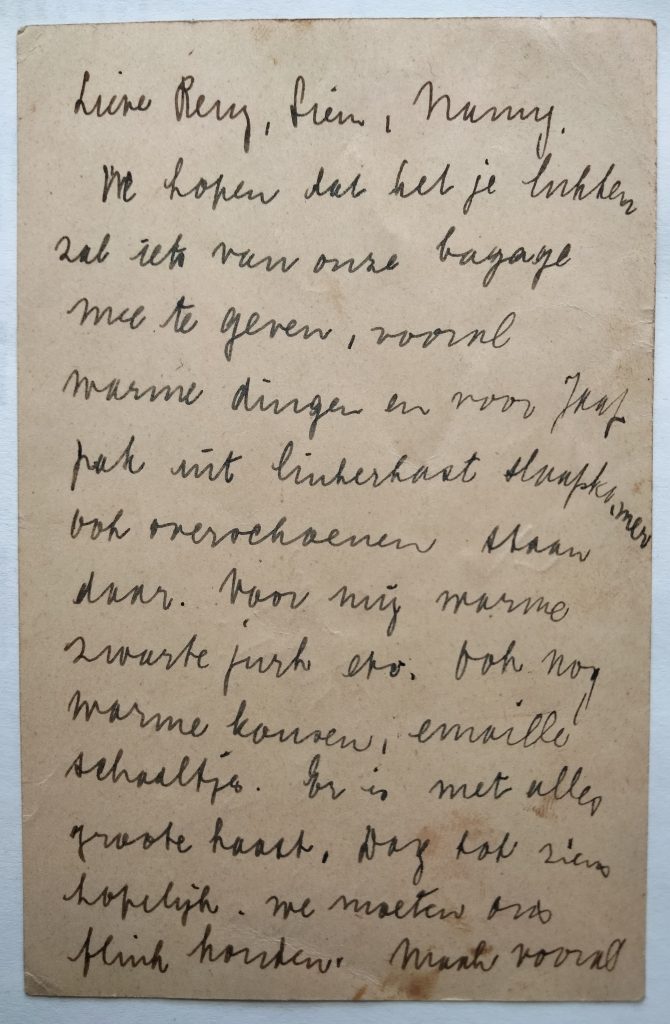 Lieve Reny, Sien, Nanny.
We hopen dat het je lukken
zal iets van onze bagage
mee te geven, vooral
warme dingen en voor Jaap
pak uit linkerkast slaapkamer
ook overschoenen staan
daar. Voor mij warme
zwarte jurk env. Ook nog
warme kousen, emaille
schaaltje. Er is met alles
groote haast. Dag tot ziens
hopelijk. we moeten ons
flink houden. Maak vooral